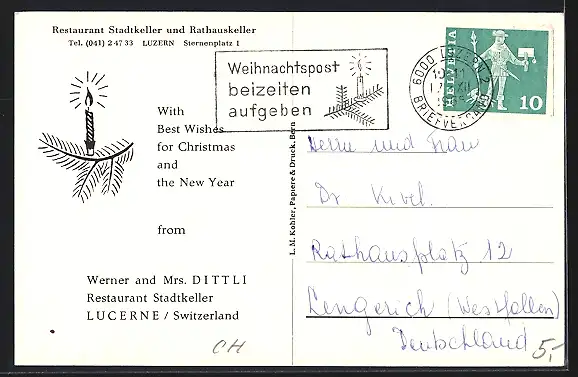 Restaurant Stadtkeller und Rathauskeller
Tel. (041) 2 47 33 LUZERN Sternenplatz 1
Weihnachtspost
beizeiten
aufgeben
6000 LUZERN 2
BRIEFVERSAND
HELVETIA
10
With
Best Wishes
for Christmas
and
the New Year
from
Werner and Mrs. DITTLI
Restaurant Stadtkeller
LUCERNE / Switzerland
L. M. Kohler, Papiere & Druck, Bern
Herrn und Frau
Dr
Rathausplatz 12
Lengerich (Westfalen)
Deutschland
CH
5,-